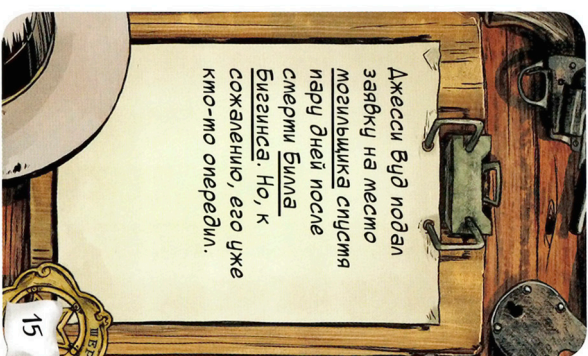 Джесси Вуд подал
заявку на место
могильщика спустя
пару дней после
смерти Билла
Биггинса. Но, к
сожалению, его уже
кто-то опередил.
15